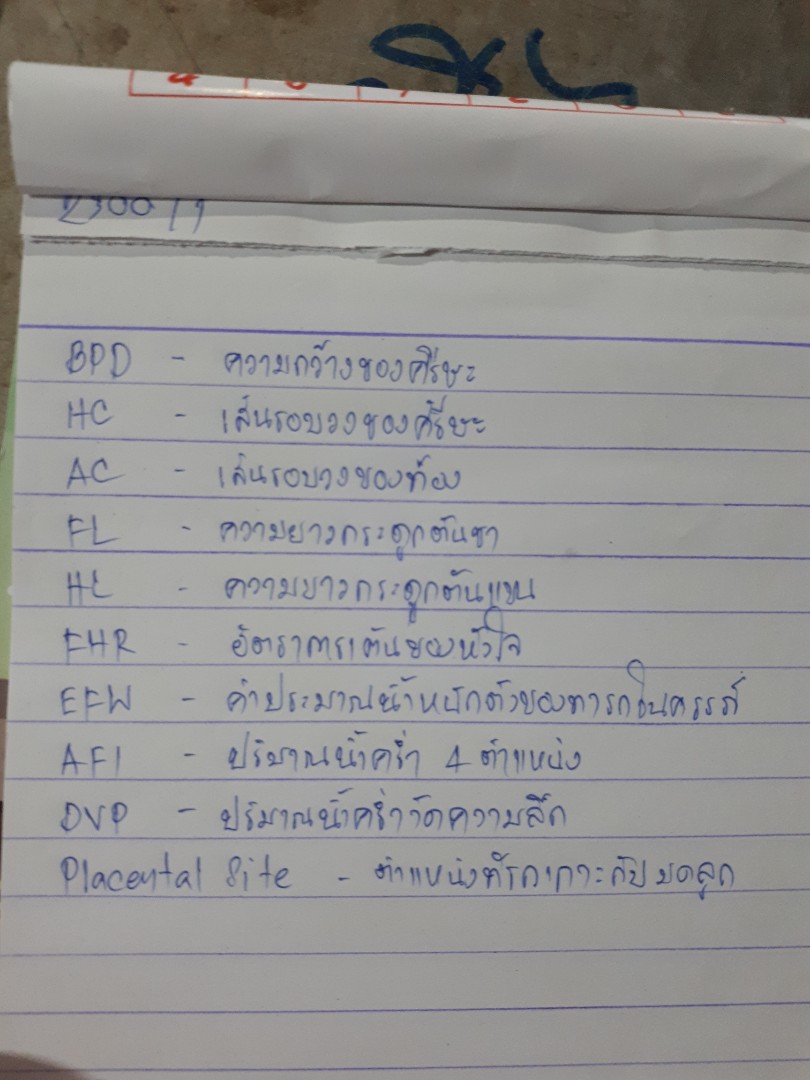 BPD - ความกว้างของศีรษะ
HC - เส้นรอบวงของศีรษะ
AC - เส้นรอบวงของท้อง
FL - ความยาวกระดูกต้นขา
HL - ความยาวกระดูกต้นแขน
FHR - อัตราการเต้นของหัวใจ
EFW - ค่าประมาณน้ำหนักตัวของทารกในครรภ์
AFI - ปริมาณน้ำคร่ำ 4 ตำแหน่ง
DVP - ปริมาณน้ำคร่ำวัดความลึก
Placental Site - ตำแหน่งที่รกเกาะกับมดลูก